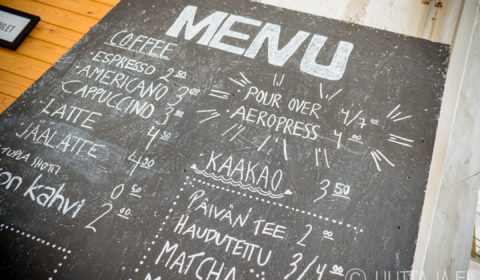 MENU
COFFEE
ESPRESSO 2 50
AMERICANO 3 00
CAPPUCCINO 3 80
LATTE 4 50
JAALATTE 4 50
TUPLA SHOTTI 0 50
kahvi 2 00
POUR OVER 4/7 00
AEROPRESS 4 00
KAAKAO 3 50
PÄIVÄN TEE 2 00
HAUDUTETTU 3/4 50
MATCHA